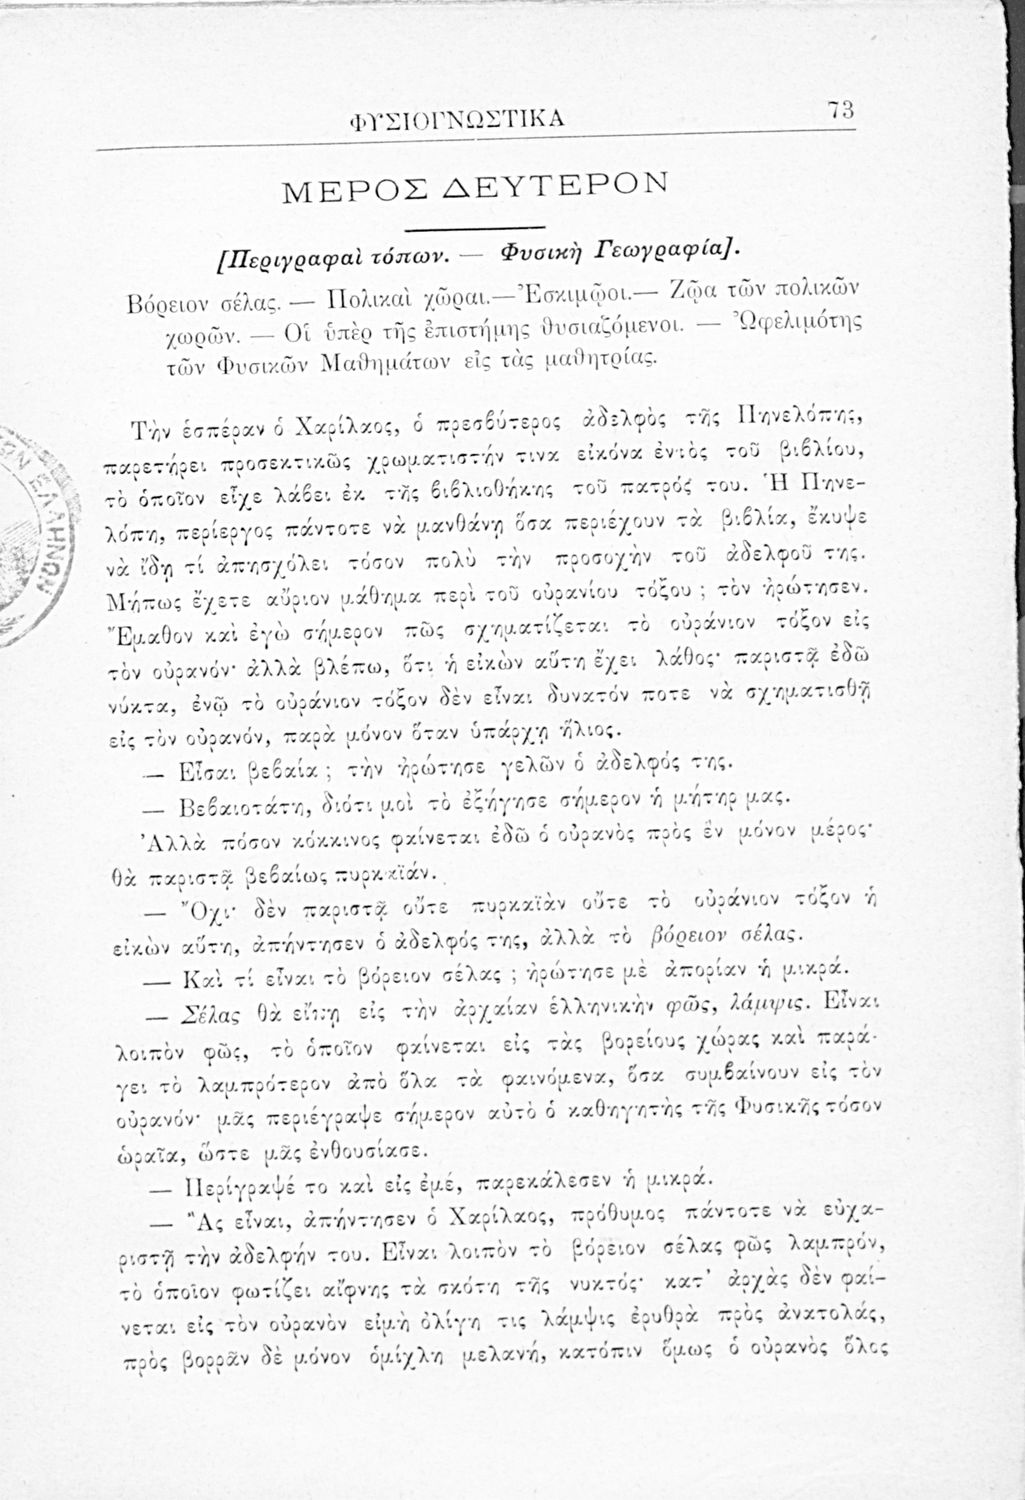 ΦΥΣΙΟΓΝΩΣΤΙΚΑ 73
ΜΕΡΟΣ ΔΕΥΤΕΡΟΝ
[Περιγραφαὶ τόπων. — Φυσικὴ Γεωγραφία].
Βόρειον σέλας. — Πολικαὶ χῶραι.—Ἐσκιμῷοι.— Ζῷα τῶν πολικῶν
χωρῶν. — Οἱ ὑπὲρ τῆς ἐπιστήμης θυσιαζόμενοι. — Ὠφελιμότης
τῶν Φυσικῶν Μαθημάτων εἰς τὰς μαθητρίας.
Τὴν ἑσπέραν ὁ Χαρίλαος, ὁ πρεσβύτερος ἀδελφὸς τῆς Πηνελόπης,
παρετήρει προσεκτικῶς χρωματιστήν τινα εἰκόνα ἐντὸς τοῦ βιβλίου,
τὸ ὁποῖον εἶχε λάβει ἐκ τῆς βιβλιοθήκης τοῦ πατρός του. Ἡ Πηνε-
λόπη, περίεργος πάντοτε νὰ μανθάνῃ ὅσα περιέχουν τὰ βιβλία, ἔκυψε
νὰ ἴδῃ τί ἀπησχόλει τόσον πολὺ τὴν προσοχὴν τοῦ ἀδελφοῦ της.
Μήπως ἔχετε αὔριον μάθημα περὶ τοῦ οὐρανίου τόξου ; τὸν ἠρώτησεν.
Ἔμαθον καὶ ἐγὼ σήμερον πῶς σχηματίζεται τὸ οὐράνιον τόξον εἰς
τὸν οὐρανόν· ἀλλὰ βλέπω, ὅτι ἡ εἰκὼν αὕτη ἔχει λάθος· παριστᾷ ἐδῶ
νύκτα, ἐνῷ τὸ οὐράνιον τόξον δὲν εἶναι δυνατόν ποτε νὰ σχηματισθῇ
εἰς τὸν οὐρανόν, παρὰ μόνον ὅταν ὑπάρχῃ ἥλιος.
— Εἶσαι βεβαία ; τὴν ἠρώτησε γελῶν ὁ ἀδελφός της.
— Βεβαιοτάτη, διότι μοὶ τὸ ἐξήγησε σήμερον ἡ μήτηρ μας.
Ἀλλὰ πόσον κόκκινος φαίνεται ἐδῶ ὁ οὐρανὸς πρὸς ἓν μόνον μέρος·
θὰ παριστᾷ βεβαίως πυρκαϊάν.
— Ὄχι· δὲν παριστᾷ οὔτε πυρκαϊὰν οὔτε τὸ οὐράνιον τόξον ἡ
εἰκὼν αὕτη, ἀπήντησεν ὁ ἀδελφός της, ἀλλὰ τὸ βόρειον σέλας.
— Καὶ τί εἶναι τὸ βόρειον σέλας ; ἠρώτησε μὲ ἀπορίαν ἡ μικρά.
— Σέλας θὰ εἴπῃ εἰς τὴν ἀρχαίαν ἑλληνικὴν φῶς, λάμψις. Εἶναι
λοιπὸν φῶς, τὸ ὁποῖον φαίνεται εἰς τὰς βορείους χώρας καὶ παρά-
γει τὸ λαμπρότερον ἀπὸ ὅλα τὰ φαινόμενα, ὅσα συμβαίνουν εἰς τὸν
οὐρανόν· μᾶς περιέγραψε σήμερον αὐτὸ ὁ καθηγητὴς τῆς Φυσικῆς τόσον
ὡραῖα, ὥστε μᾶς ἐνθουσίασε.
— Περίγραψέ το καὶ εἰς ἐμέ, παρεκάλεσεν ἡ μικρά.
— Ἂς εἶναι, ἀπήντησεν ὁ Χαρίλαος, πρόθυμος πάντοτε νὰ εὐχα-
ριστῇ τὴν ἀδελφήν του. Εἶναι λοιπὸν τὸ βόρειον σέλας φῶς λαμπρόν,
τὸ ὁποῖον φωτίζει αἴφνης τὰ σκότη τῆς νυκτός· κατ' ἀρχὰς δὲν φαί-
νεται εἰς τὸν οὐρανὸν εἰμὴ ὀλίγη τις λάμψις ἐρυθρὰ πρὸς ἀνατολάς,
πρὸς βορρᾶν δὲ μόνον ὁμίχλη μελανή, κατόπιν ὅμως ὁ οὐρανὸς ὅλος
ΕΛΛΗΝΩΝ